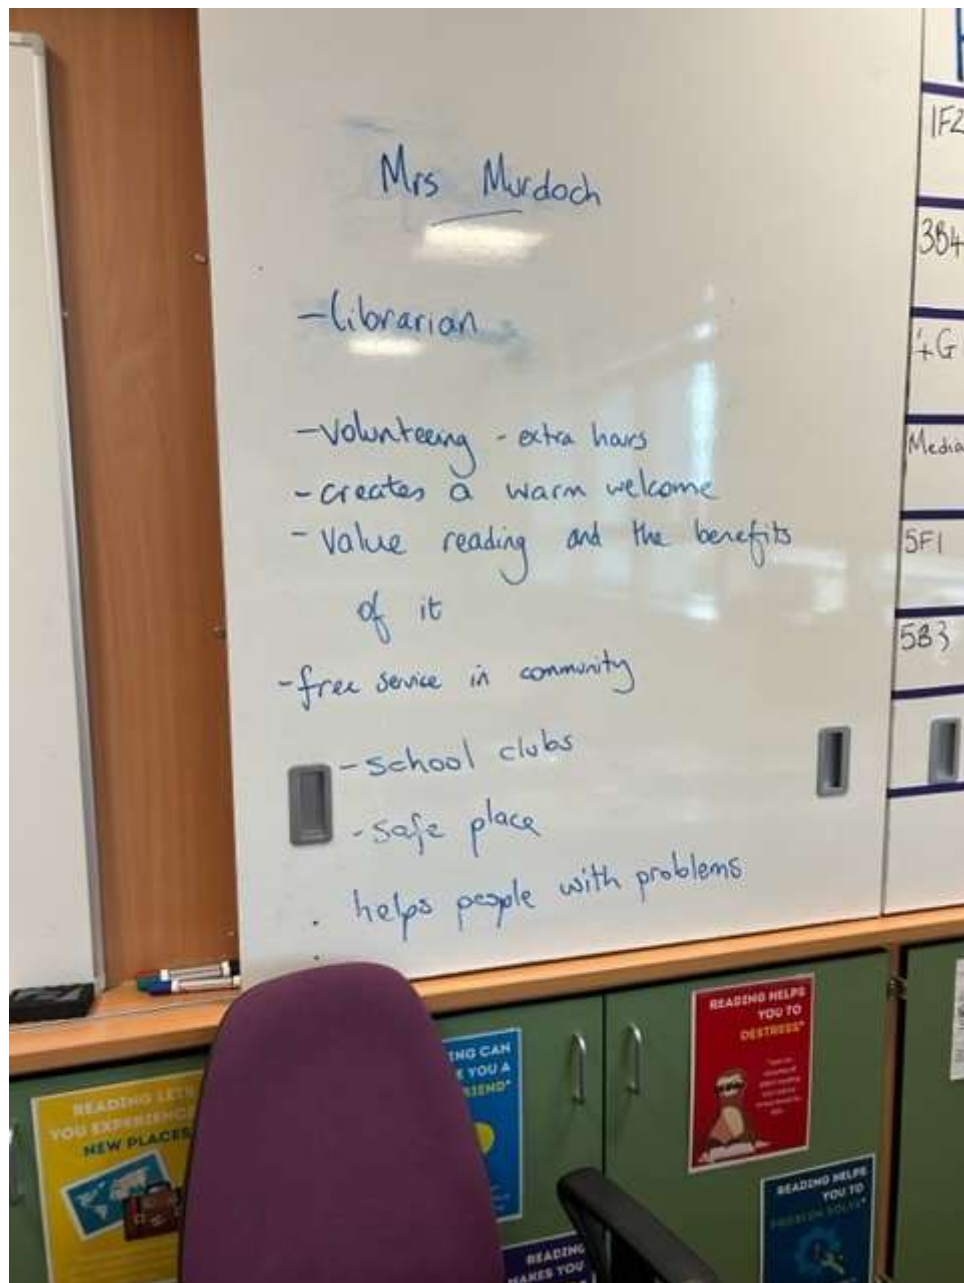 Mrs Murdoch
-librarian
-volunteering - extra hours
-creates a warm welcome
-value reading and the benefits
of it
-free service in community
-school clubs
-safe place
helps people with problems
1F2
3B4
Media
5F1
5B3
READING LETS
YOU EXPERIENCE
NEW PLACES
READING HELPS
YOU TO
DESTRESS"
READING HELPS
YOU TO
READING
MAKES YOU